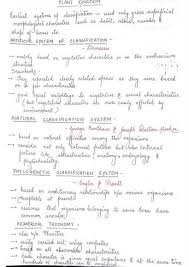 PLANT KINGDOM
Earliest systems of classification → used only gross superficial
morphological characters such as habit, colour, number &
shape of leaves etc.
ARTIFICIAL SYSTEM OF CLASSIFICATION -
Linnaeus
→ mainly based on vegetative characters or on the androecium
structure.
Drawbacks -
→ they separated closely related species as they were based
on a few characters
→ gave equal weightage to vegetative & sexual characters
(but vegetative characters are more easily affected by
environment)
NATURAL CLASSIFICATION SYSTEM -
George Bentham & Joseph Dalton Hooker
→ based on natural affinities among the organisms
→ consider not only external features but also internal
features like ultrastructure, anatomy, embryology &
phytochemistry
PHYLOGENETIC CLASSIFICATION SYSTEM -
→ based on evolutionary relationships b/w various organisms
→ acceptable at present
→ assumes that organisms belonging to same taxa have
common ancestor
NUMERICAL TAXONOMY -
→ easily carried out using computers
→ based on all observable characteristics
→ each character is given equal importance & at the same time
hundreds of characters can be considered